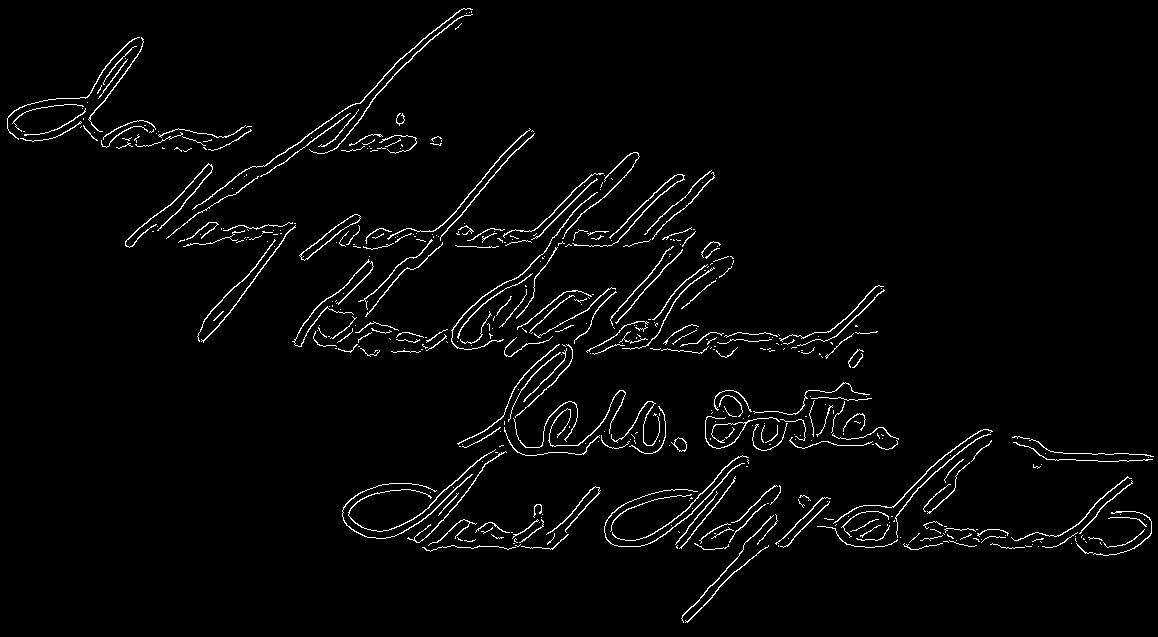 I am Sir.
Very respectfully,
Your Obt Servant,
C. W. Foster
Ass't Adj't General